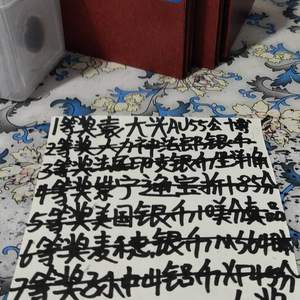 1等奖袁大头AU55公博
2等奖大力神法郎银币
3等奖法属印支银币坐洋
4等奖崇宁通宝折十85分
5等奖美国银币1美分真品
6等奖麦穗银币MS64
7等奖孙中山铝币XF45分